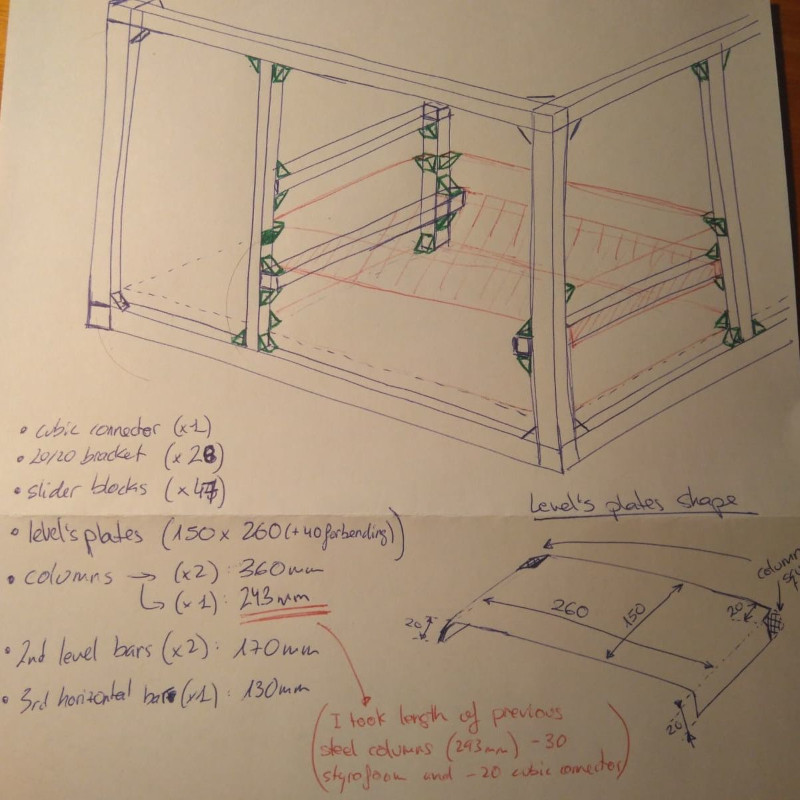 • cubic connector (x1)
• 20/20 bracket (x 28)
• slider blocks (x 47)
• level's plates (150 x 260 (+40 for bending))
• columns → (x2) : 360mm
(x1) : 243mm
• 2nd level bars (x2) : 170mm
• 3rd horizontal bar (x1) : 130mm
(I took length of previous
steel columns (293mm) -30
styrofoam and -20 cubic connector)
Level's plates shape
column
20
260
150
20
20